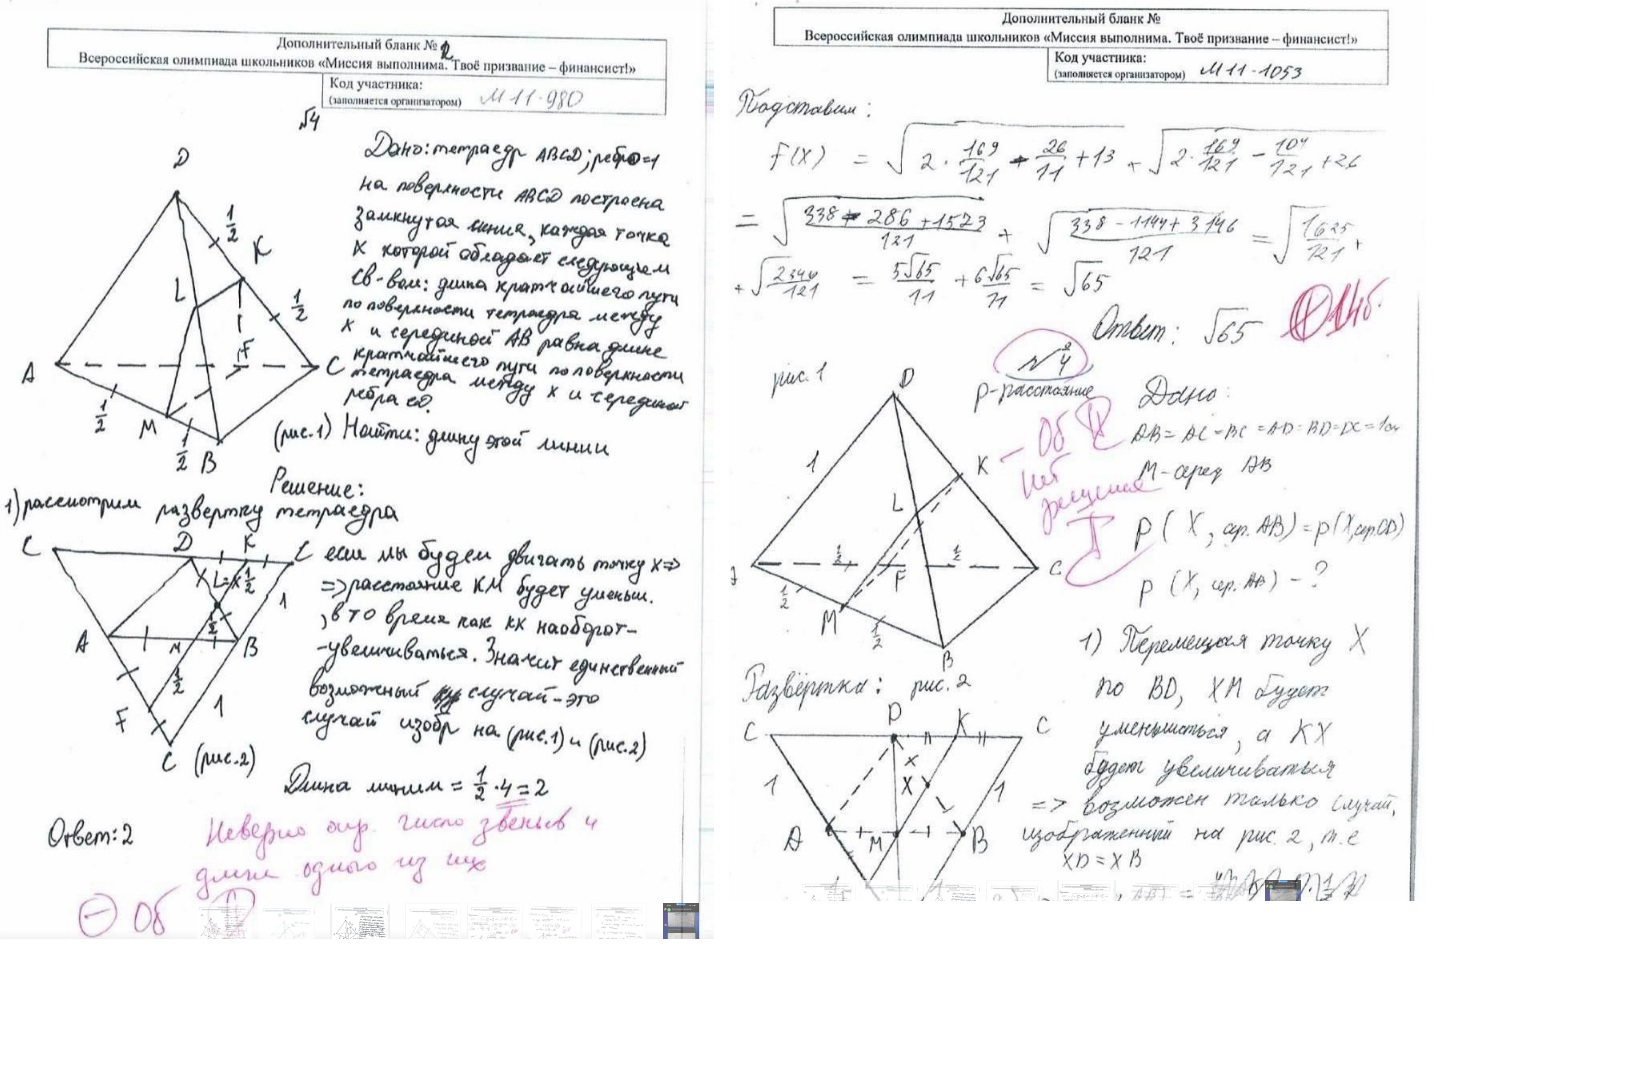 Дополнительный бланк № 2
Всероссийская олимпиада школьников «Миссия выполнима. Твоё призвание – финансист!»
Код участника:
(заполняется организатором) М 11-980
№4
Дано: тетраедр ABCD; ребро=1
на поверхности ABCD построена
замкнутая линия, каждая точка
X которой обладает следующем
св-вом: длина кратчайшего пути
по поверхности тетраедра между
X и серединой AB равна длине
кратчайшего пути по поверхности
тетраедра между X и серединой
ребра CD.
(рис.1) Найти: длину этой линии
D
1/2
K
L
1/2
F
A
C
1/2
M
1/2
B
Решение:
1) рассмотрим развертку тетраедра
C D K C
1/2
1
A M B
1/2
F
1
C (рис.2)
если мы будем двигать точку X =>
=> расстояние KM будет уменьш.
, в то время как KX наоборот-
-увеличиваться. Значит единственный
возможный случай - это
случай изобр на (рис.1) и (рис.2)
Длина линии = 1/2 · 4 = 2
Ответ: 2
Неверно опр. число звеньев и
длина одного из них
0б
Дополнительный бланк №
Всероссийская олимпиада школьников «Миссия выполнима. Твоё призвание – финансист!»
Код участника:
(заполняется организатором) М 11-1053
Подставим:
f(x) = √(2 · 169/121 - 26/11 + 13) + √(2 · 169/121 - 104/121 + 26
= √((338 - 286 + 1573)/121) + √((338 - 1144 + 3146)/121) = √(1625/121) +
+ √(2340/121) = 5√65/11 + 6√65/11 = √65
Ответ: √65
14б.
№4
рис. 1
p-расстояние
Дано:
AB = AC = BC = AD = BD = DC = 1
M - серед AB
p (X, сер. AB) = p(X, сер. CD)
p (X, сер. AB) - ?
- 0б
нет
решения
D
1
K
L
1/2
F
1/2
C
1/2
M
1/2
B
1) Перемещая точку X
по BD, XM будет
уменьшаться, а KX
будет увеличиваться
=> возможен только случай,
изображенный на рис. 2, т.е
XD = XB
Развёртка: рис. 2
C D K C
1
X
1
A M B